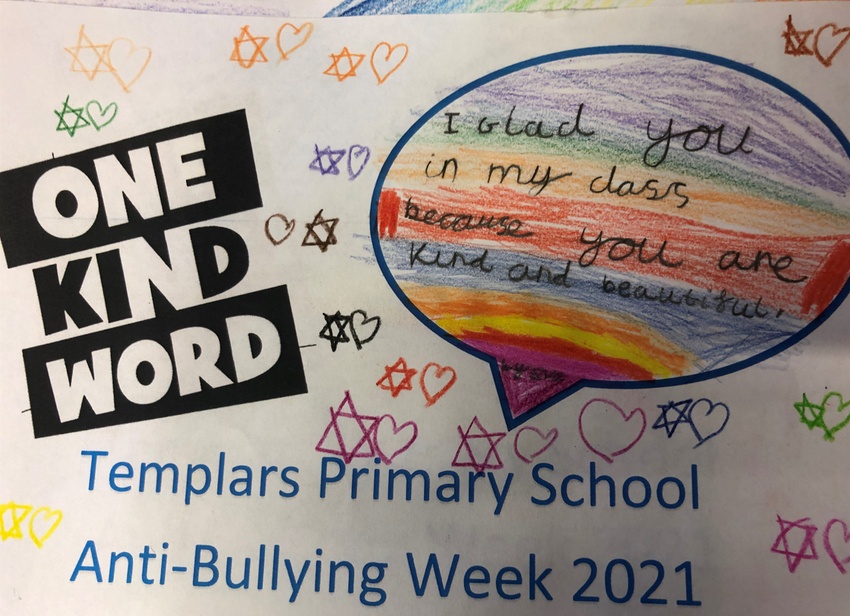 ONE
KIND
WORD
I Glad you
in my class
because you are
Kind and beautiful.
Templars Primary School
Anti-Bullying Week 2021